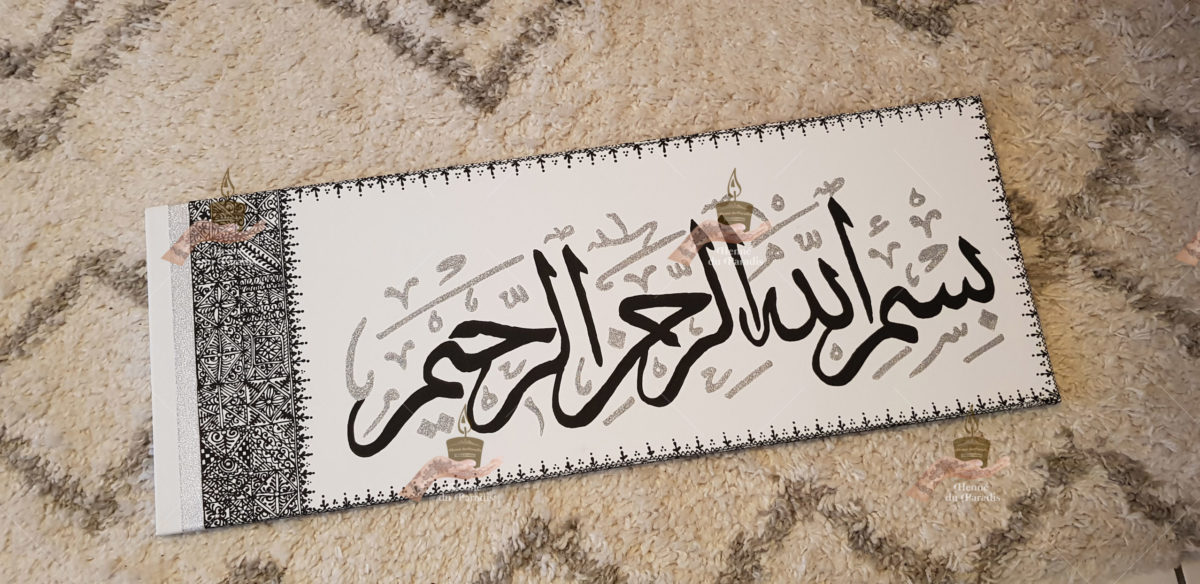 بِسْمِ اللّٰهِ الرَّحْمٰنِ الرَّحِيمِ
Henné
du Paradis
Henné
du Paradis
Henné
du Paradis